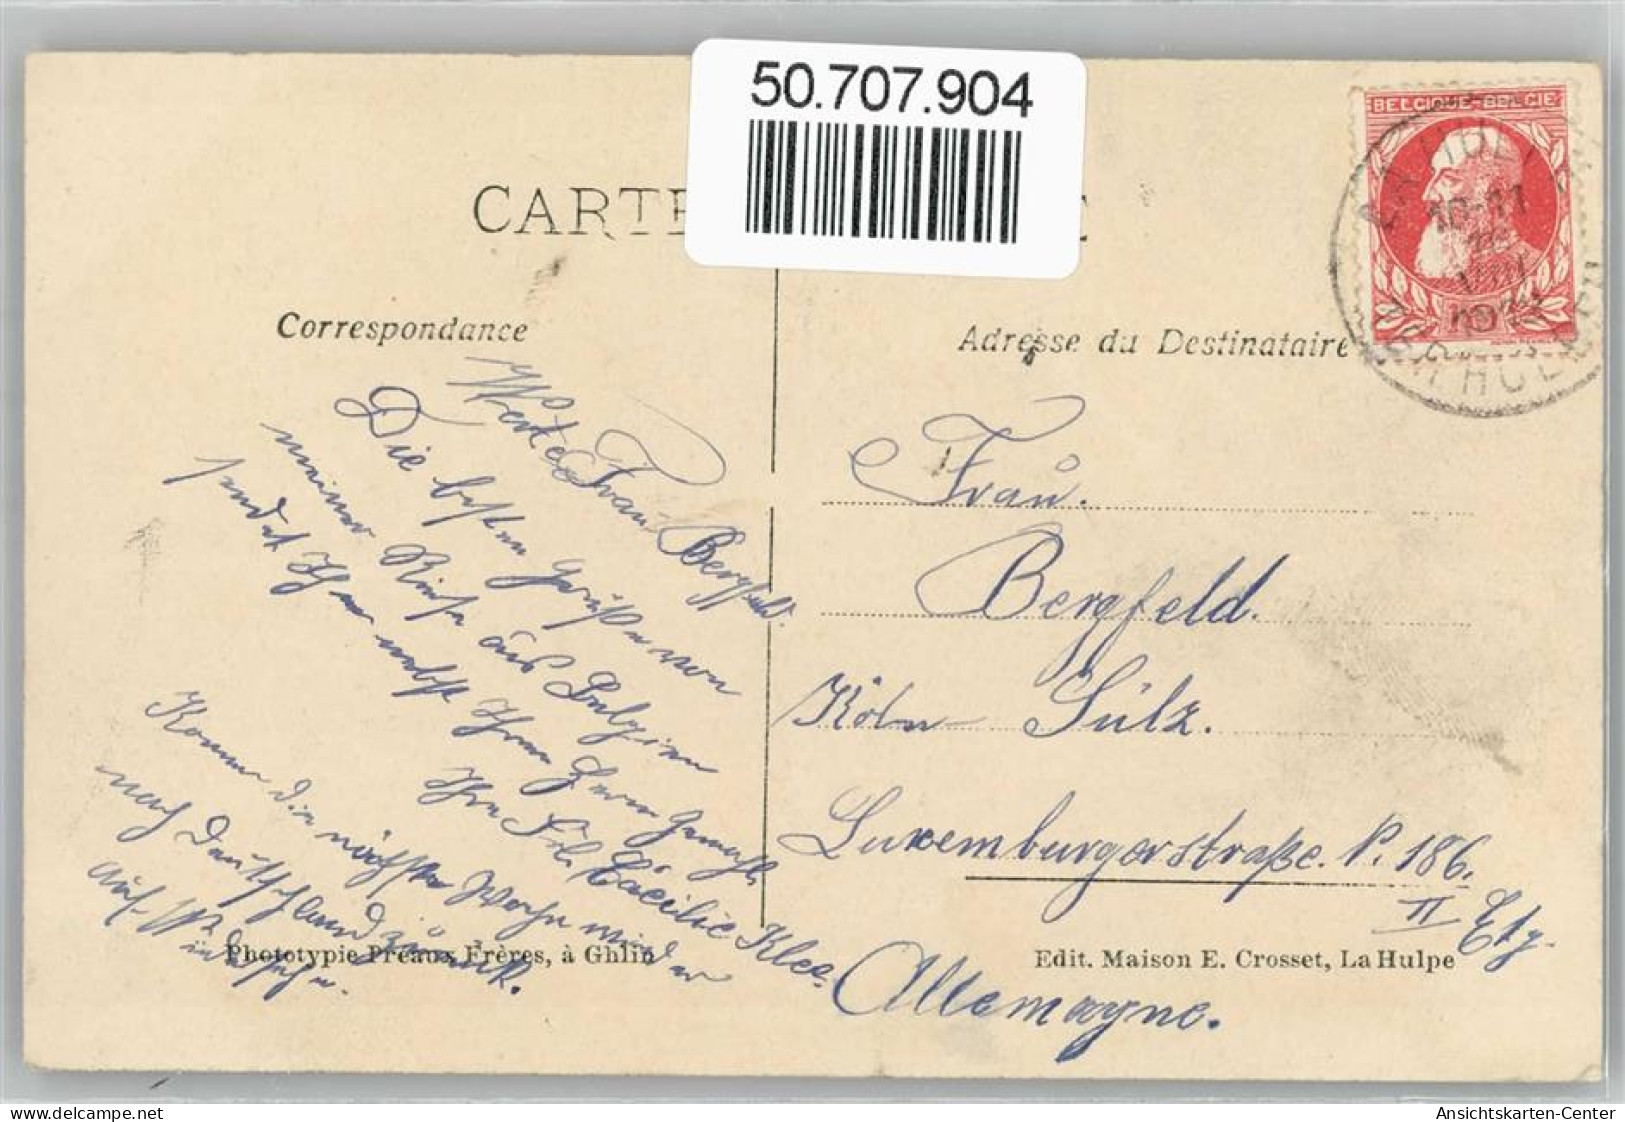 50.707.904
BELGIQUE-BELGIE
CARTE
Correspondance
Adresse du Destinataire
Werte Frau Bergfeld.
Die besten Grüße von
meiner Reise aus Belgien
sendet Ihnen nebst Ihrem Herrn Gemahl,
Ihre Frl. Cäcilie Klee.
Komme die nächste Woche wieder
nach Deutschland zurück.
Auf Wiedersehn.
Frau.
Bergfeld.
Köln- Sülz.
Luxemburgerstraße. N. 186.
II Etg.
Allemagne.
Phototypie Préaux Frères, à Ghlin
Edit. Maison E. Crosset, La Hulpe
delcampe.net
Ansichtskarten-Center